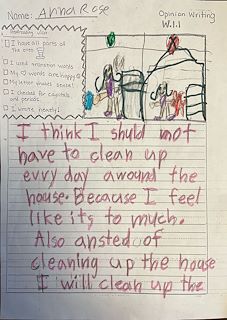 Name: Anna Rose
Opinion Writing
W.1.1
I have all parts of
I used transition words
My words are happy
My letter makes sense!
I checked for capitals
and periods
I wrote neatly!
I think I shuld not
have to clean up
evry day awound the
house. Because I feel
like its to much.
Also ansted of
cleaning up the house
I will clean up the